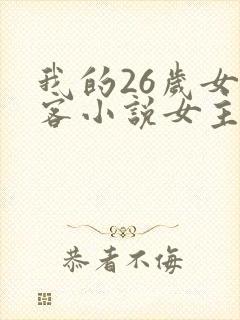 我的26歲女
客小說女主
恭者不侮